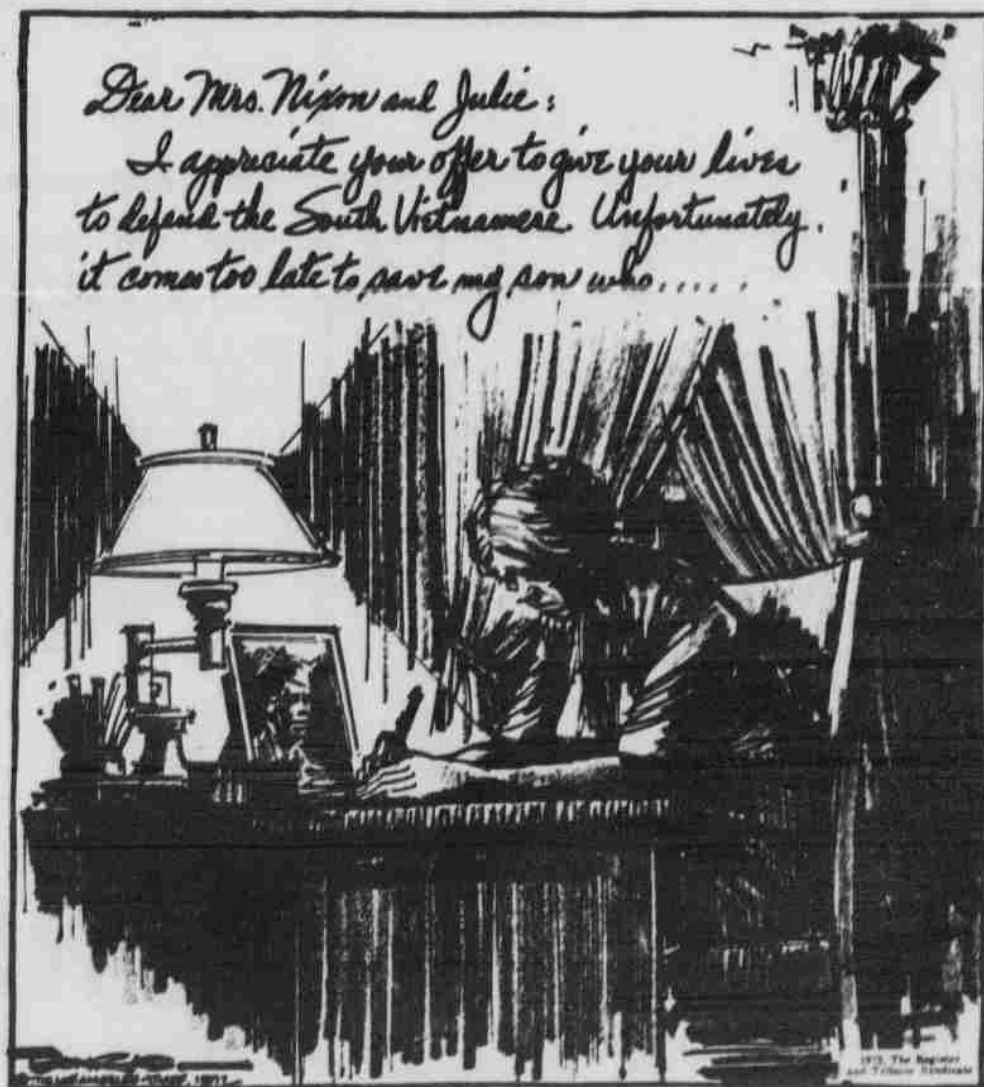 Dear Mrs. Nixon and Julie:
I appreciate your offer to give your lives
to defend the South Vietnamese. Unfortunately.
it comes too late to save my son who.....
1972, The Register
and Tribune Syndicate